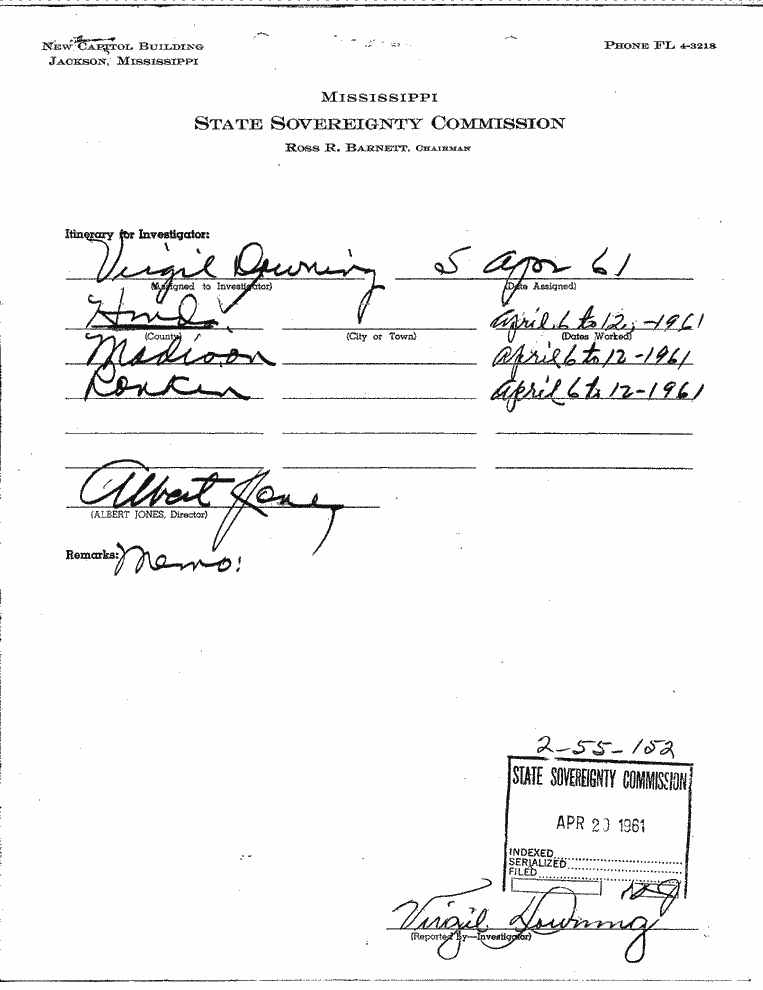 NEW CAPITOL BUILDING
JACKSON, MISSISSIPPI
PHONE FL 4-3218
MISSISSIPPI
STATE SOVEREIGNTY COMMISSION
ROSS R. BARNETT, CHAIRMAN
Itinerary for Investigator:
Virgil Downing 5 Apr 61
(Assigned to Investigator) (Date Assigned)
Hinds April 6 to 12, -1961
(County) (City or Town) (Dates Worked)
Madison April 6 to 12-1961
Rankin April 6 to 12-1961
Albert Jones
(ALBERT JONES, Director)
Remarks: Memo!
2-55-152
STATE SOVEREIGNTY COMMISSION
APR 20 1961
INDEXED
SERIALIZED
FILED
Virgil Downing
(Reported By—Investigator)